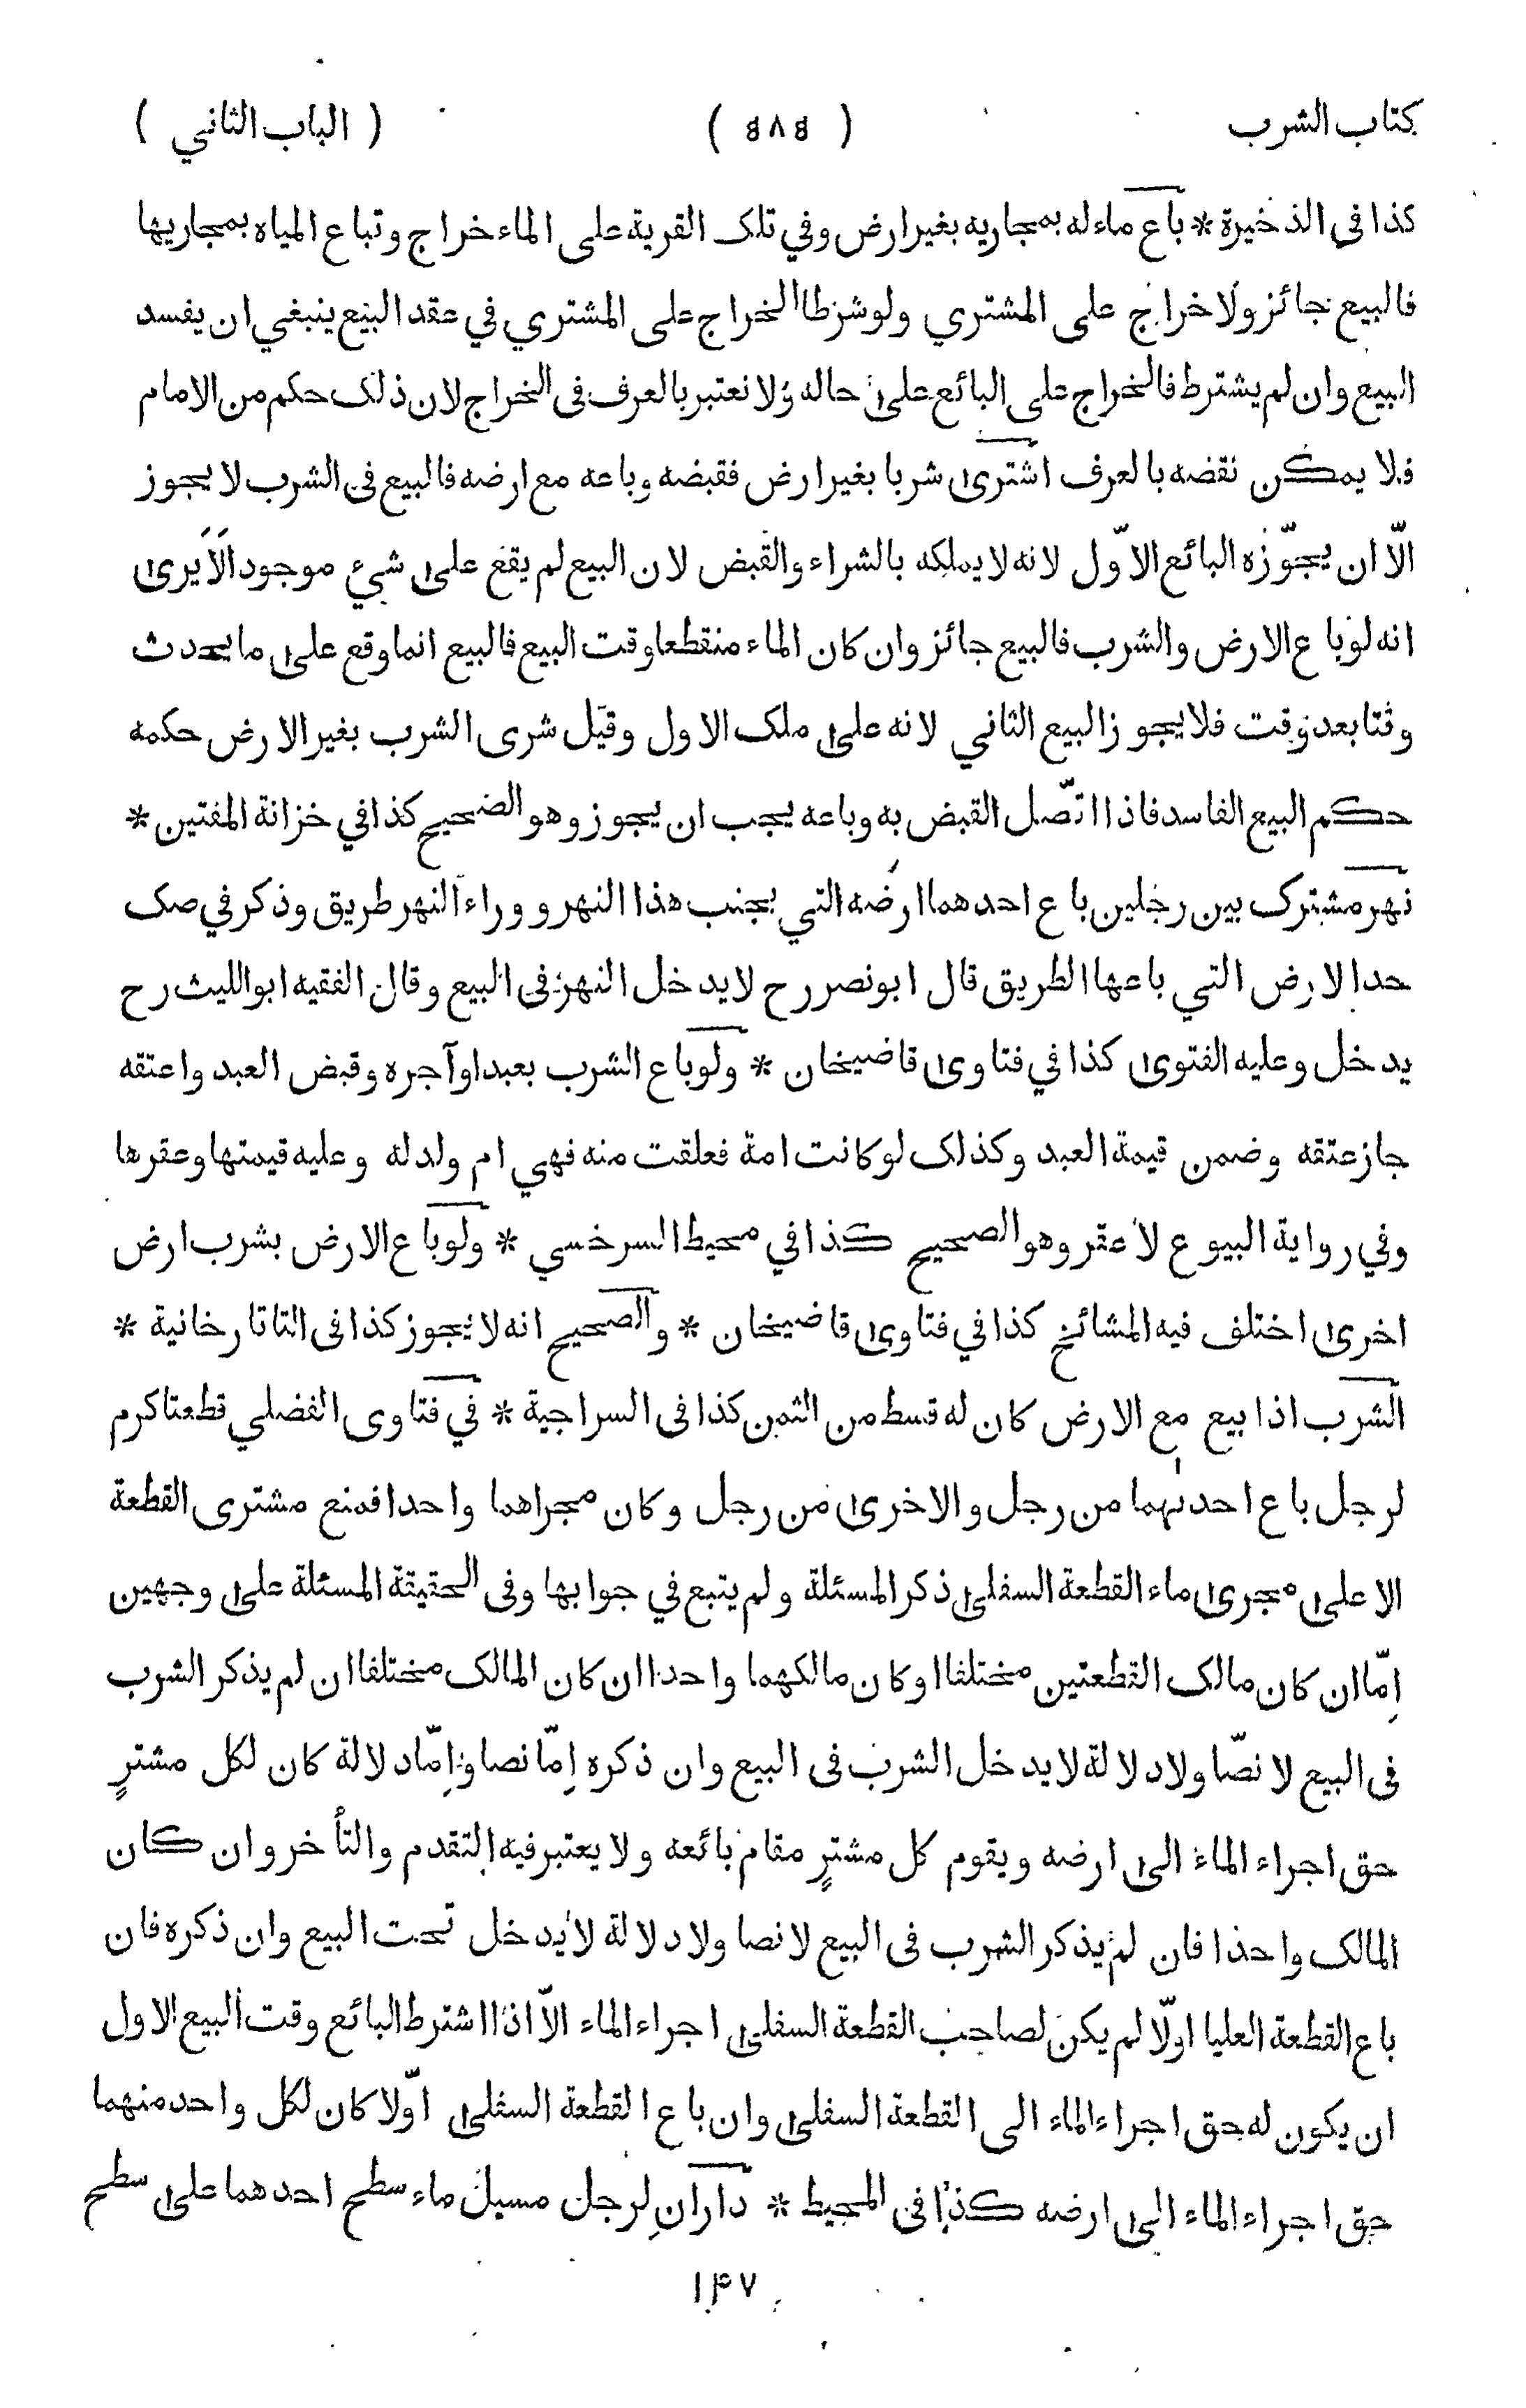 كتاب الشرب ( ٥٧٥ ) ( الباب الثاني )
كذا فى الذخيرة * باع ماءله بمجاريه بغير ارض وفي تلك القرية على الماء خراج وتباع المياه بمجاريها
فالبيع جائز ولا خراج على المشتري ولو شرطا الخراج على المشتري في عقد البيع ينبغي ان يفسد
البيع وان لم يشترط فالخراج على البائع على حاله ولا نعتبر بالعرف فى الخراج لان ذلك حكم من الامام
فلا يمكن نقضه بالعرف اشترى شربا بغير ارض فقبضه وباعه مع ارضه فالبيع فى الشرب لا يجوز
الّا ان يجوّزه البائع الاوّل لانه لا يملكه بالشراء والقبض لان البيع لم يقع على شيء موجود الَا يَرى
انه لو باع الارض والشرب فالبيع جائز وان كان الماء منقطعا وقت البيع فالبيع انما وقع على ما يحدث
وقتا بعد وقت فلا يجوز البيع الثاني لانه على ملك الاول وقيل شرى الشرب بغير الارض حكمه
حكم البيع الفاسد فاذا اتّصل القبض به وباعه يجب ان يجوز وهو الصحيح كذا في خزانة المفتين *
نهر مشترك بين رجلين باع احدهما ارضه التي بجنب هذا النهر ووراء النهر طريق وذكر في صك
حد الارض التي باعها الطريق قال ابو نصر رح لا يدخل النهر فى البيع وقال الفقيه ابو الليث رح
يدخل وعليه الفتوى كذا في فتاوى قاضيخان * ولو باع الشرب بعبد او آجره وقبض العبد واعتقه
جاز عتقه وضمن قيمة العبد وكذلك لو كانت امة فعلقت منه فهي ام ولد له وعليه قيمتها وعقرها
وفي رواية البيوع لا عقر وهو الصحيح كذا في محيط السرخسي * ولو باع الارض بشرب ارض
اخرى اختلف فيه المشائخ كذا في فتاوى قاضيخان * والصحيح انه لا يجوز كذا فى التاتارخانية *
الشرب اذا بيع مع الارض كان له قسط من الثمن كذا فى السراجية * في فتاوى الفضلي قطعتا كرم
لرجل باع احدىهما من رجل والاخرى من رجل وكان مجراهما واحدا فمنع مشترى القطعة
الاعلى مجرى ماء القطعة السفلى ذكر المسئلة ولم يتبع في جوابها وفى الحقيقة المسئلة على وجهين
اِمّا ان كان مالك القطعتين مختلفا او كان مالكهما واحدا ان كان المالك مختلفا ان لم يذكر الشرب
فى البيع لا نصّا ولا دلالة لا يدخل الشرب فى البيع وان ذكره اِمّا نصا واِمّا دلالة كان لكل مشترٍ
حق اجراء الماء الى ارضه ويقوم كل مشترٍ مقام بائعه ولا يعتبر فيه التقدم والتأخر وان كان
المالك واحدا فان لم يذكر الشرب فى البيع لا نصا ولا دلالة لا يدخل تحت البيع وان ذكره فان
باع القطعة العليا اولّا لم يكن لصاحب القطعة السفلى اجراء الماء الّا اذا اشترط البائع وقت البيع الاول
ان يكون له حق اجراء الماء الى القطعة السفلى وان باع القطعة السفلى اوّلا كان لكل واحد منهما
حق اجراء الماء الى ارضه كذا فى المحيط * دارانِ لرجل مسيل ماء سطح احدهما على سطح
١۴٧